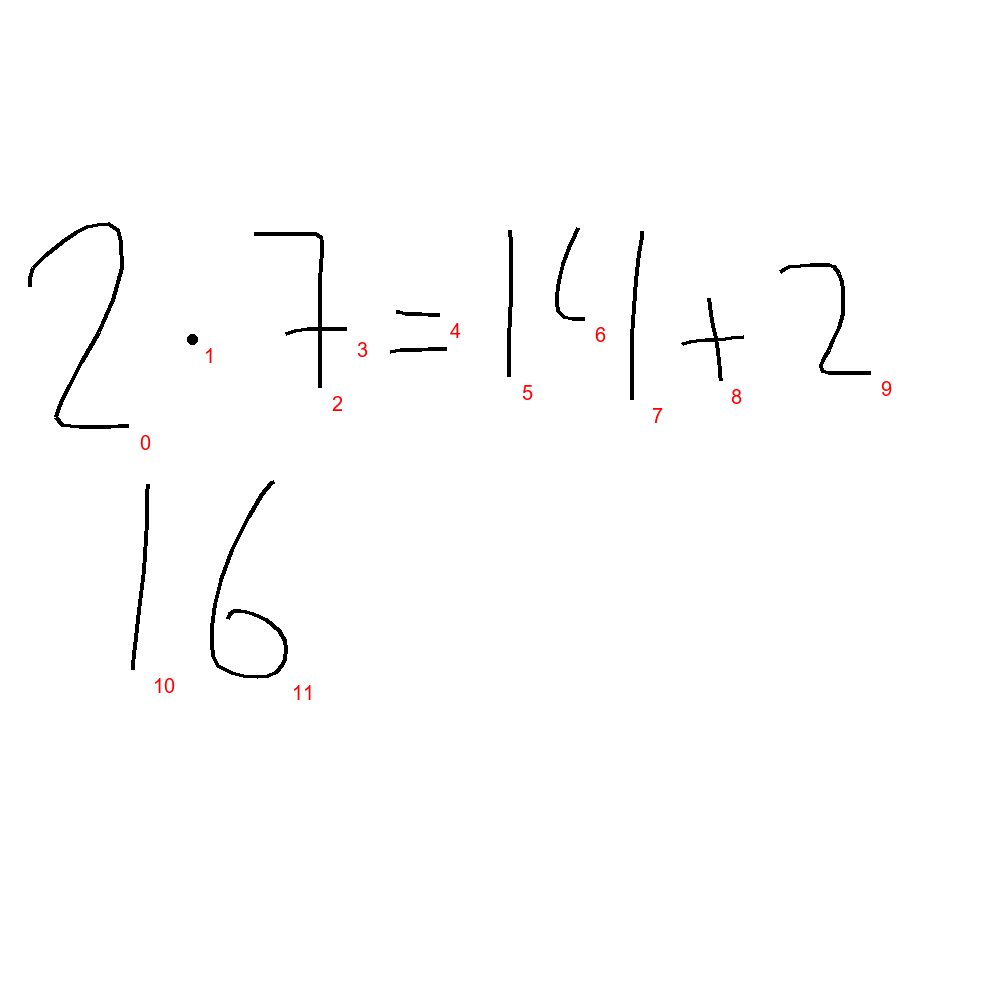 2 · 7 = 14 + 2
16
0 1 2 3 4 5 6 7 8 9
10 11